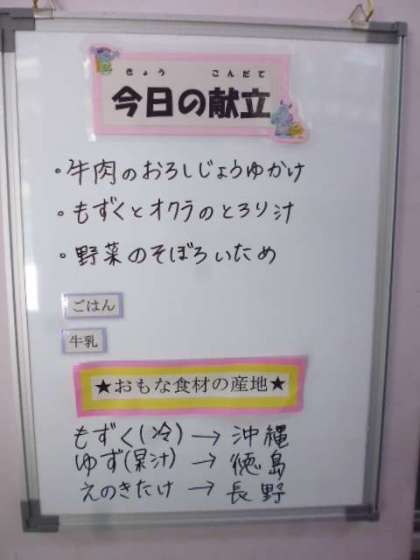 きょう こんだて
今日の献立
・牛肉のおろしじょうゆかけ
・もずくとオクラのとろり汁
・野菜のそぼろいため
ごはん
牛乳
★おもな食材の産地★
もずく(冷)→沖縄
ゆず(果汁)→徳島
えのきたけ→長野